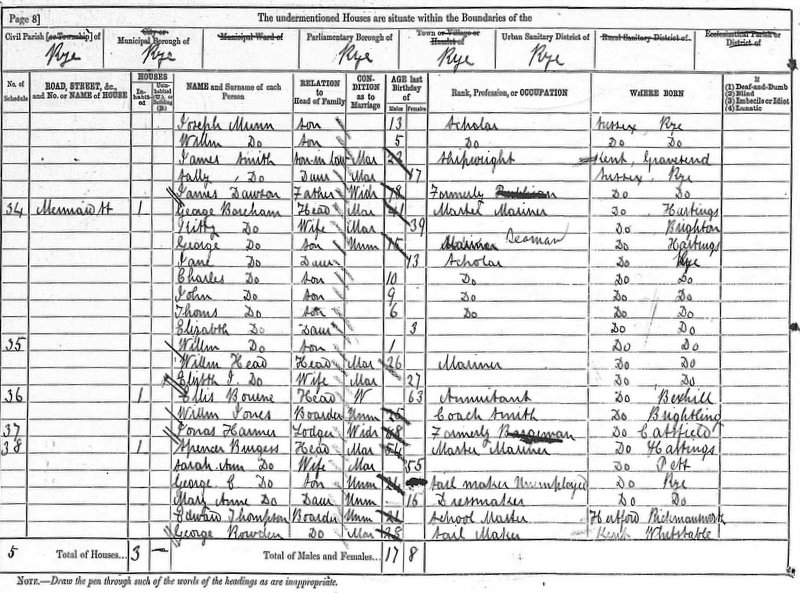 Page 8] The undermentioned Houses are situate within the Boundaries of the
Civil Parish [or Township] of City or Municipal Borough of Municipal Ward of Parliamentary Borough of Town or Village or Hamlet of Urban Sanitary District of Rural Sanitary District of Ecclesiastical Parish or District of
Rye Rye Rye Rye Rye
No. of Schedule ROAD, STREET, &c., and No. or NAME of HOUSE HOUSES Inhabited Uninhabited (U.), or Building (B.) NAME and Surname of each Person RELATION to Head of Family CONDITION as to Marriage AGE last Birthday of Males Females Rank, Profession, or OCCUPATION WHERE BORN If (1) Deaf-and-Dumb (2) Blind (3) Imbecile or Idiot (4) Lunatic
Joseph Munn son 13 Scholar Sussex Rye
Willm Do son 5 Do Do Do
James Smith son-in law Mar 22 Shipwright Kent, Gravesend
Sally Do Daur Mar 17 Sussex Rye
James Dawson Father Widr Formerly Publican Do Do
34 Mermaid St 1 George Boreham Head Mar 41 Master Mariner Do Hastings
Do Wife Mar 39 Do Brighton
George Do son Unm 15 Mariner Seaman Do Hastings
Jane Do Daur 13 Scholar Do Rye
Charles Do son 10 Do Do Do
John Do son 9 Do Do Do
Thoms Do son 6 Do Do Do
Elizabth Do Daur 3 Do Do
35 Willm Do son 1 Do Do
Willm Head Head Mar 26 Mariner Do Do
Do Wife Mar 27 Do Do
36 1 Ellis Bourne Head W 63 Annuitant Do Bexhill
Willm Jones Boarder Unm 25 Coach Smith Do Brightling
37 Jonas Harmer Lodger Widr 68 Formerly Bargeman Do Catsfield
38 1 Spencer Burgess Head Mar 54 Master Mariner Do Hastings
Sarah Ann Do Wife Mar 55 Do Pett
George C. Do son Unm Sail maker Unemployed Do Rye
Mary Anne Do Daur Unm 16 Dressmaker Do Do
Edward Thompson Boarder Unm 21 School Master Hertford Rickmansworth
George Rowden Do Mar Sail Maker Kent Whitstable
5 Total of Houses... 3 — Total of Males and Females... 17 8
NOTE.—Draw the pen through such of the words of the headings as are inappropriate.